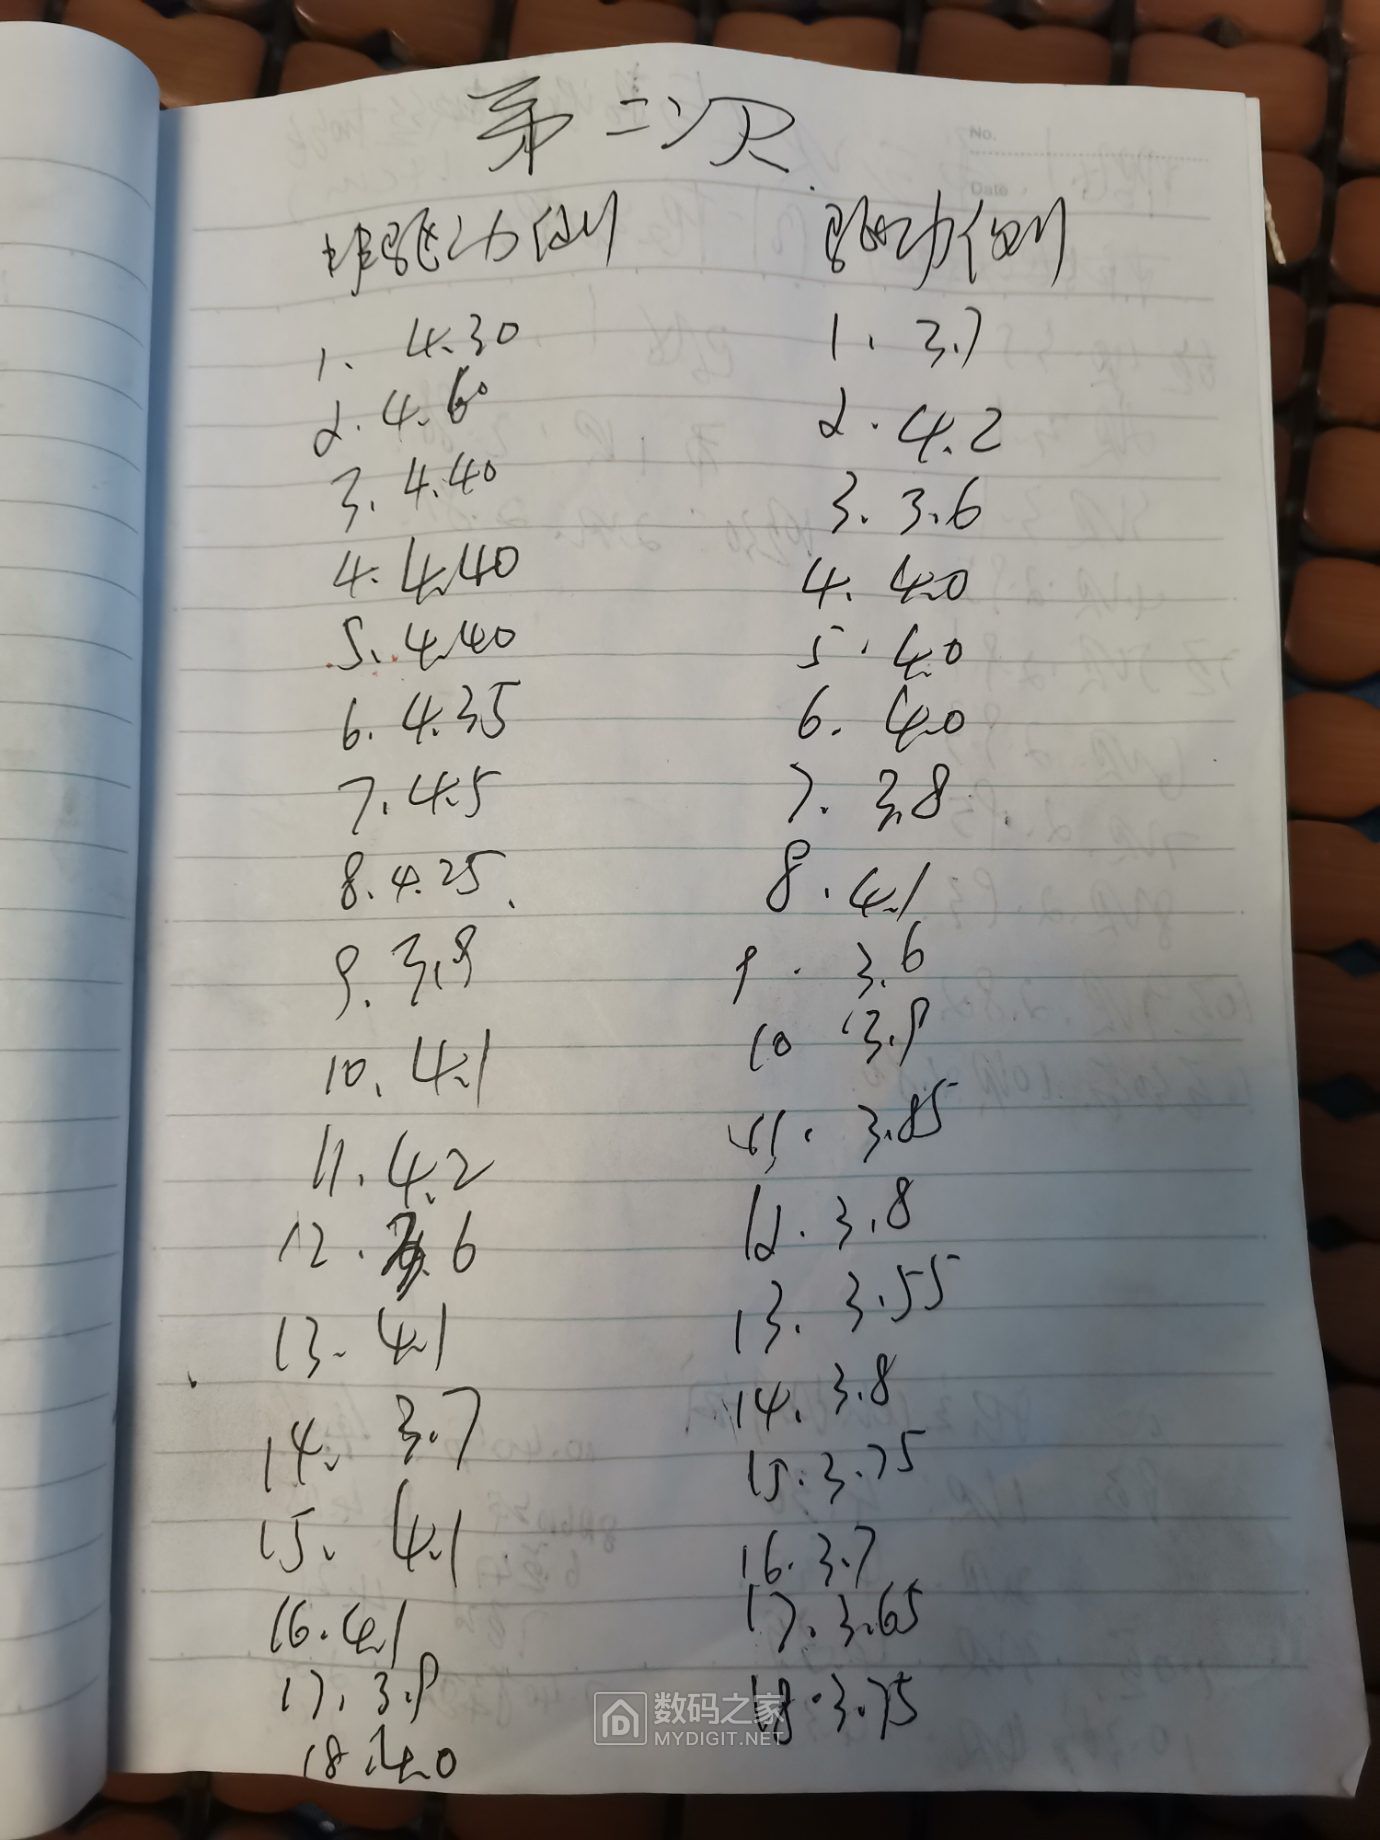 第二次
非驱动侧 驱动侧
1. 4.30 1. 3.7
2. 4.60 2. 4.2
3. 4.40 3. 3.6
4. 4.40 4. 4.0
5. 4.40 5. 4.0
6. 4.35 6. 4.0
7. 4.5 7. 3.8
8. 4.25 8. 4.1
9. 3.9 9. 3.6
10. 4.1 10 3.9
11. 4.2 11. 3.85
12. 3.6 12. 3.8
13. 4.1 13. 3.55
14. 3.7 14. 3.8
15. 4.1 15. 3.75
16. 4.1 16. 3.7
17. 3.9 17. 3.65
18. 4.0 18. 3.75
No.
Date
数码之家
MYDIGIT.NET